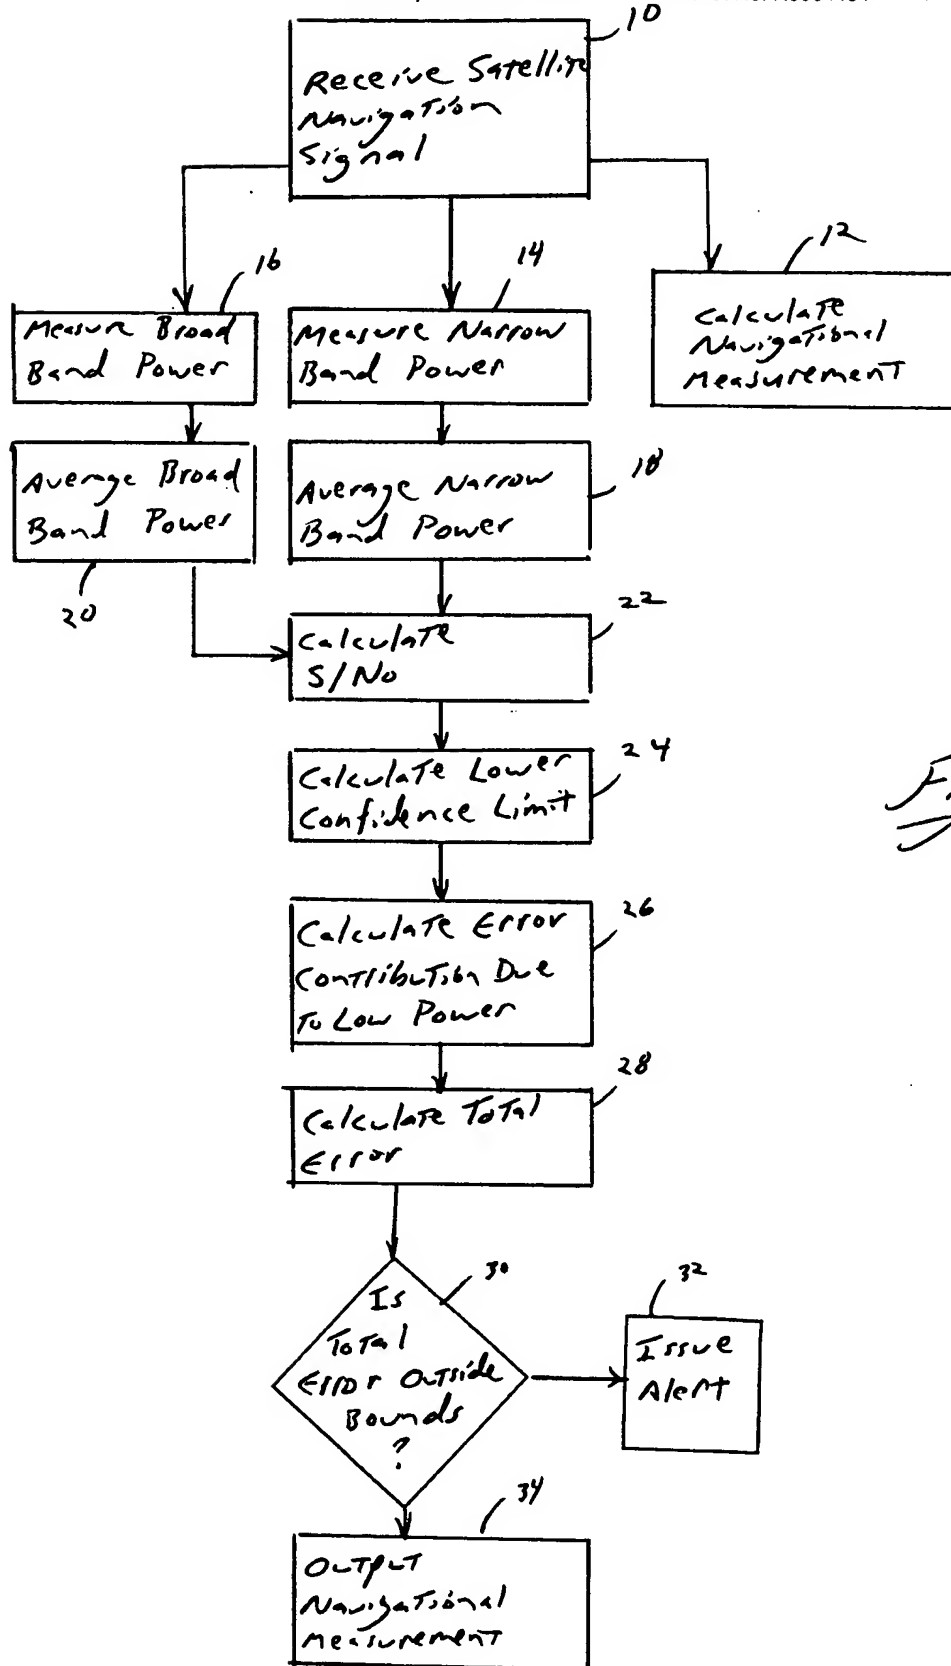 10
Receive Satellite
Navigation
Signal
16
14
12
Measure Broad
Band Power
Measure Narrow
Band Power
Calculate
Navigational
Measurement
Average Broad
Band Power
20
Average Narrow
Band Power
18
Calculate
S/No
22
Calculate Lower
Confidence Limit
24
Calculate Error
Contribution Due
To Low Power
26
Calculate Total
Error
28
Is
Total
Error Outside
Bounds
?
30
32
Issue
Alert
34
Output
Navigational
Measurement